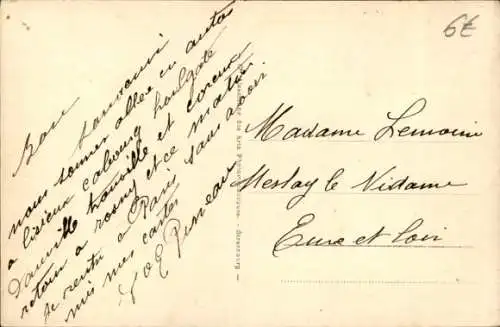 Bon
souvenir
nous sommes allée en auto
a lisieux cabourg houlgate
Dauville trouville et
retour a rosny et ce matin
je rentre a Paris sans avoir
mis mes cartes
J et E Pineau
Madame Lemoine
Meslay le Vidame
Eure et Loir
6€